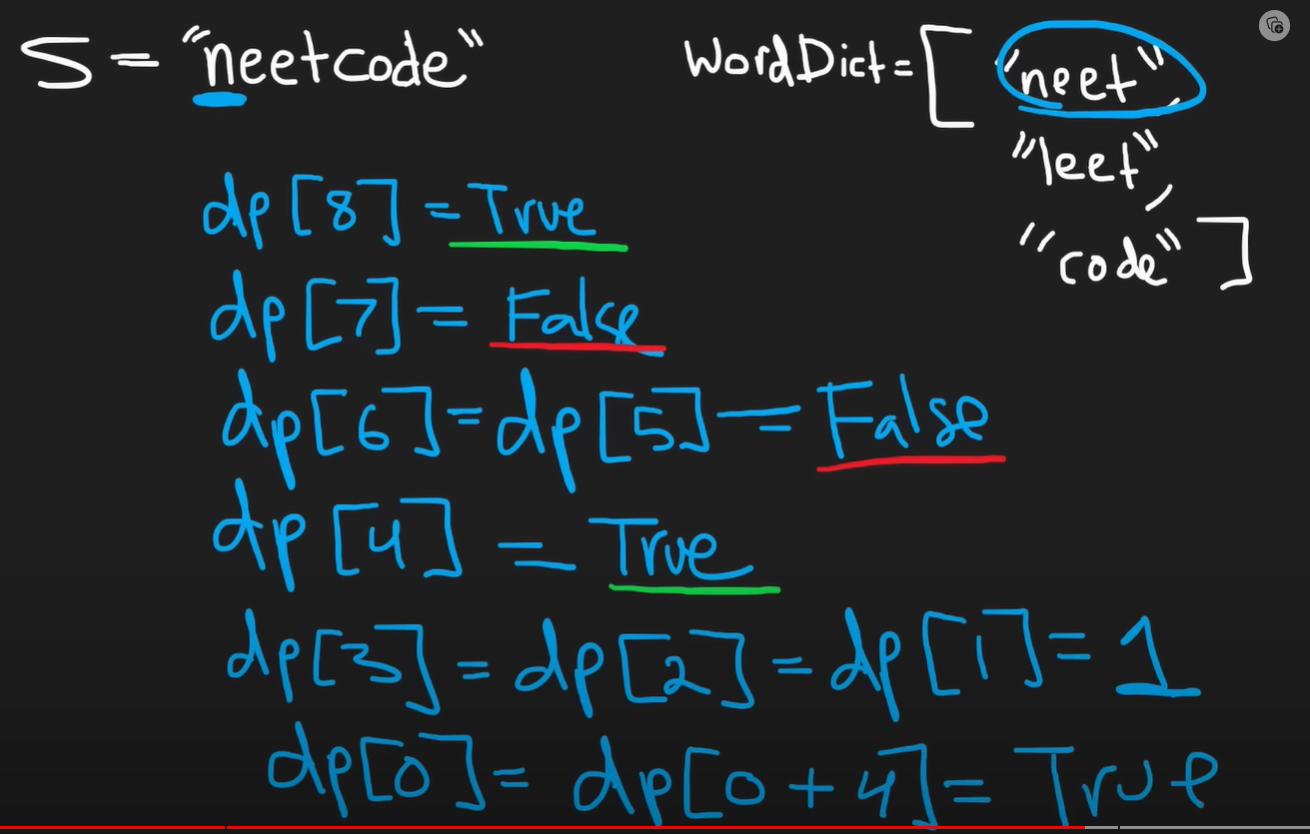 S = "neetcode"
WordDict = [ "neet",
"leet",
"code" ]
dp[8] = True
dp[7] = False
dp[6] = dp[5] = False
dp[4] = True
dp[3] = dp[2] = dp[1] = 1
dp[0] = dp[0+4] = True